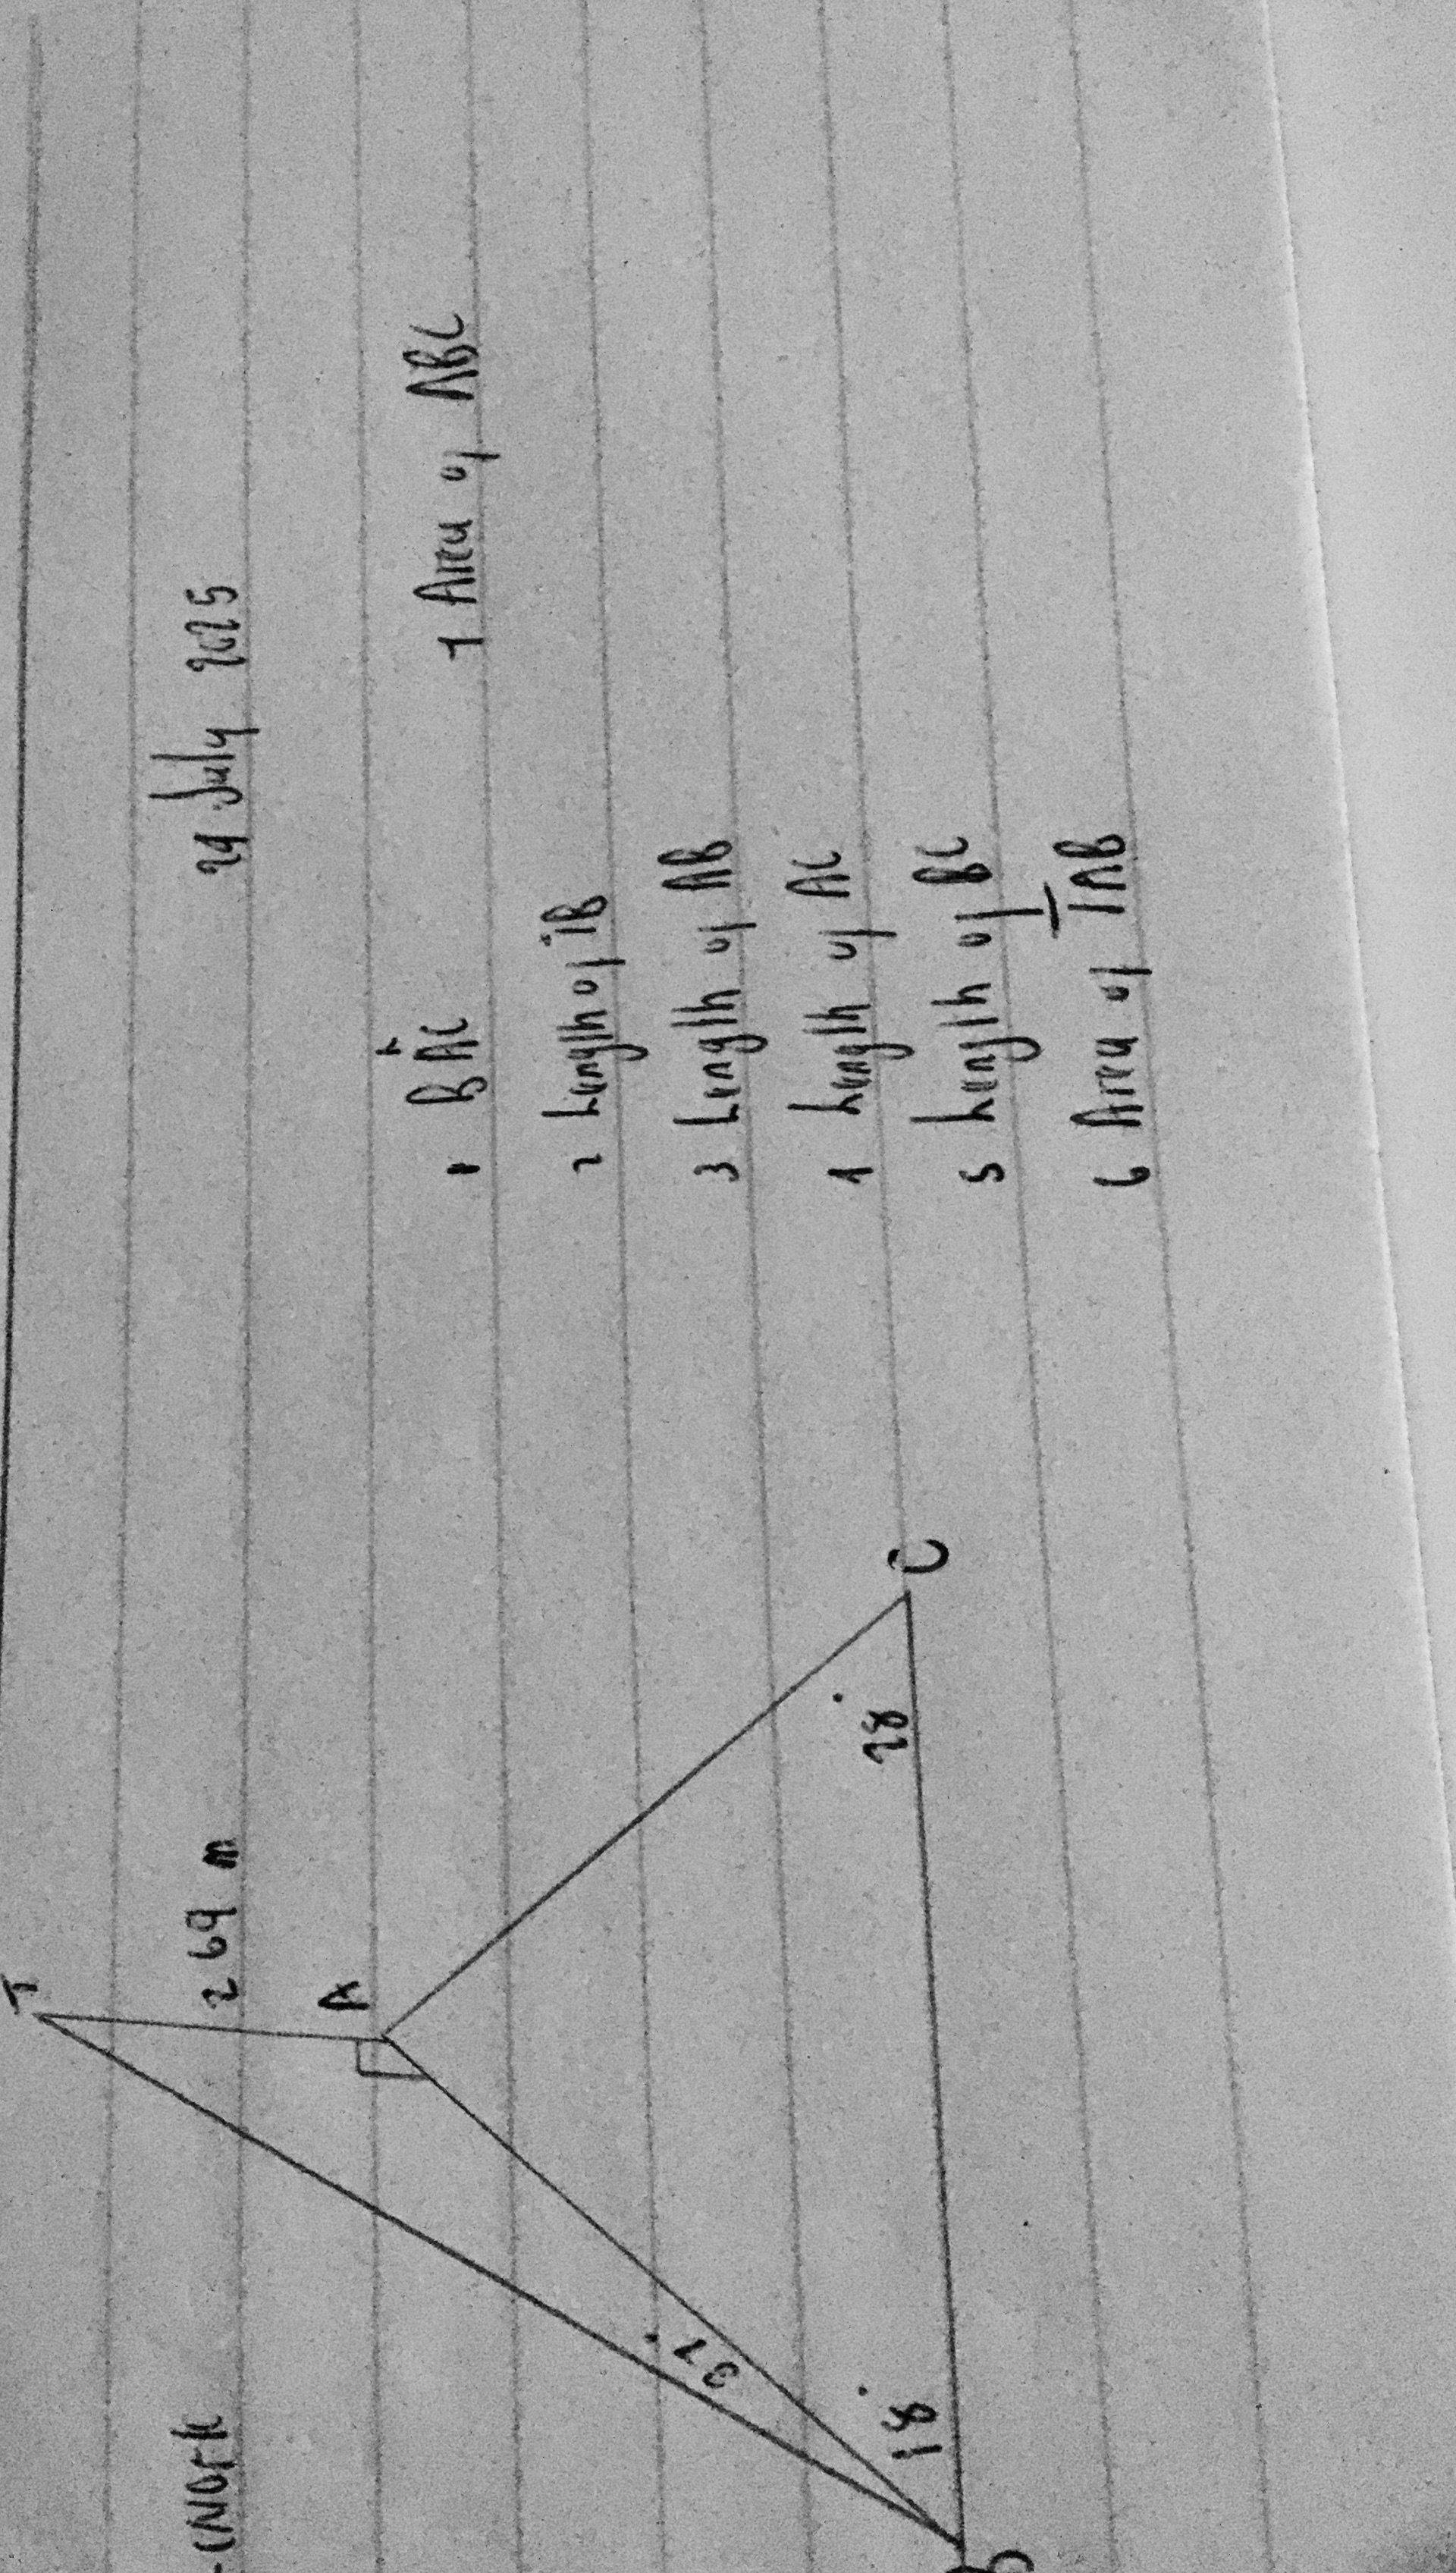 -(Work
29 July 2025
T
269 m
A
37°
18°
28°
B
C
1 BÂC
2 Length of TB
3 Length of AB
4 Length of AC
5 Length of BC
6 Area of TAB
7 Area of ABC